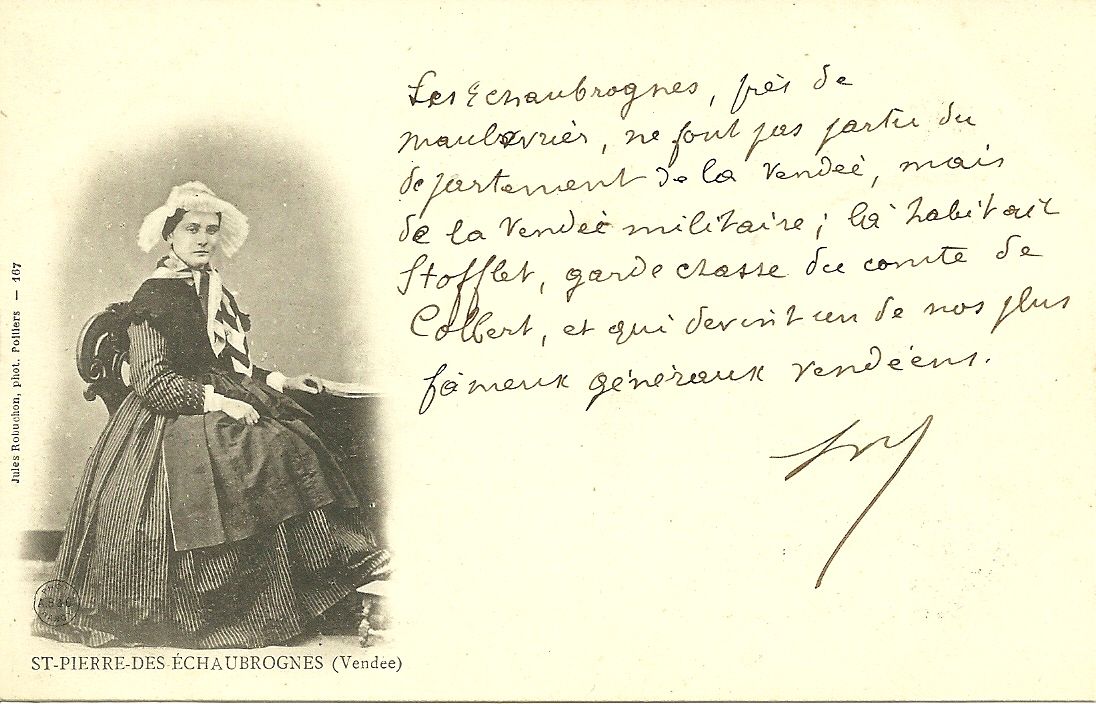 Les Echaubrognes, près de
maulévrier, ne font pas partie du
département de la Vendée, mais
de la Vendée militaire; là habitait
Stofflet, garde chasse du comte de
Colbert, et qui devint un de nos plus
fameux généraux vendéens.
Jules Robuchon, phot. Poitiers — 167
ST-PIERRE-DES-ÉCHAUBROGNES (Vendée)